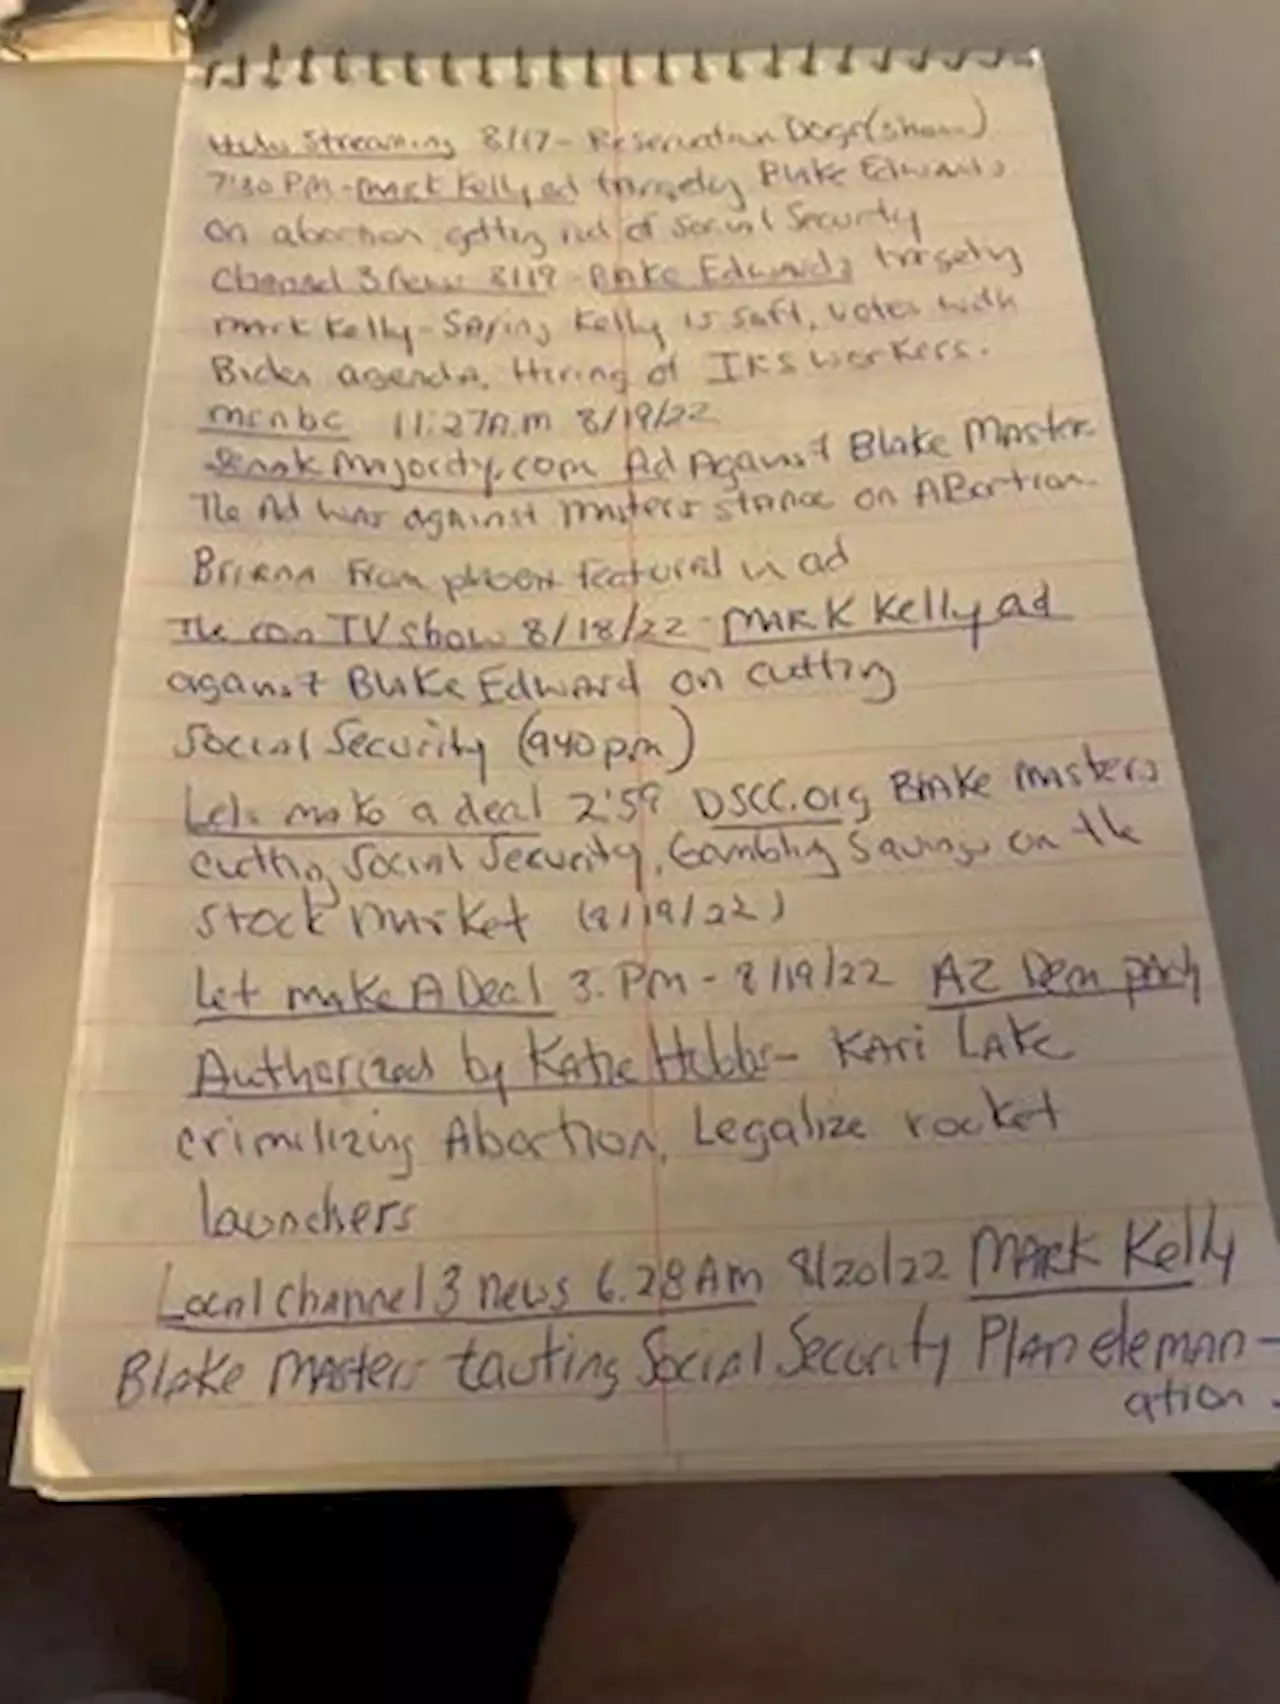 Hulu Streaming 8/17 - Reservation Dogs (show)
7:30 PM - Mark Kelly ad targety Blake Edwards
on abortion, getting rid of Social Security
Channel 3 News 8/19 - Blake Edwards targety
Mark Kelly - Saying Kelly is soft, votes with
Biden agenda, Hiring of IRS workers.
msnbc 11:27A.m 8/19/22
Majority.com Ad Against Blake Master
The Ad was against masters stance on ABortion.
Briana From featured in ad
The con TV show 8/18/22 - MARK Kelly ad
against Blake Edward on cutting
Social Security (940pm)
Lets make a deal 2:59 DSCC.org Blake masters
cutting Social Security, Gambling Savings on the
stock market (8/19/22)
Let make A Deal 3. Pm - 8/19/22 AZ Dem party
Authorized by Katie Hobbs - KAri LAKe
crimilizing Abortion, Legalize rocket
launchers
Local channel 3 news 6.28Am 8/20/22 MARK Kelly
Blake Masters tauting Social Security Plan eleman-
ation.